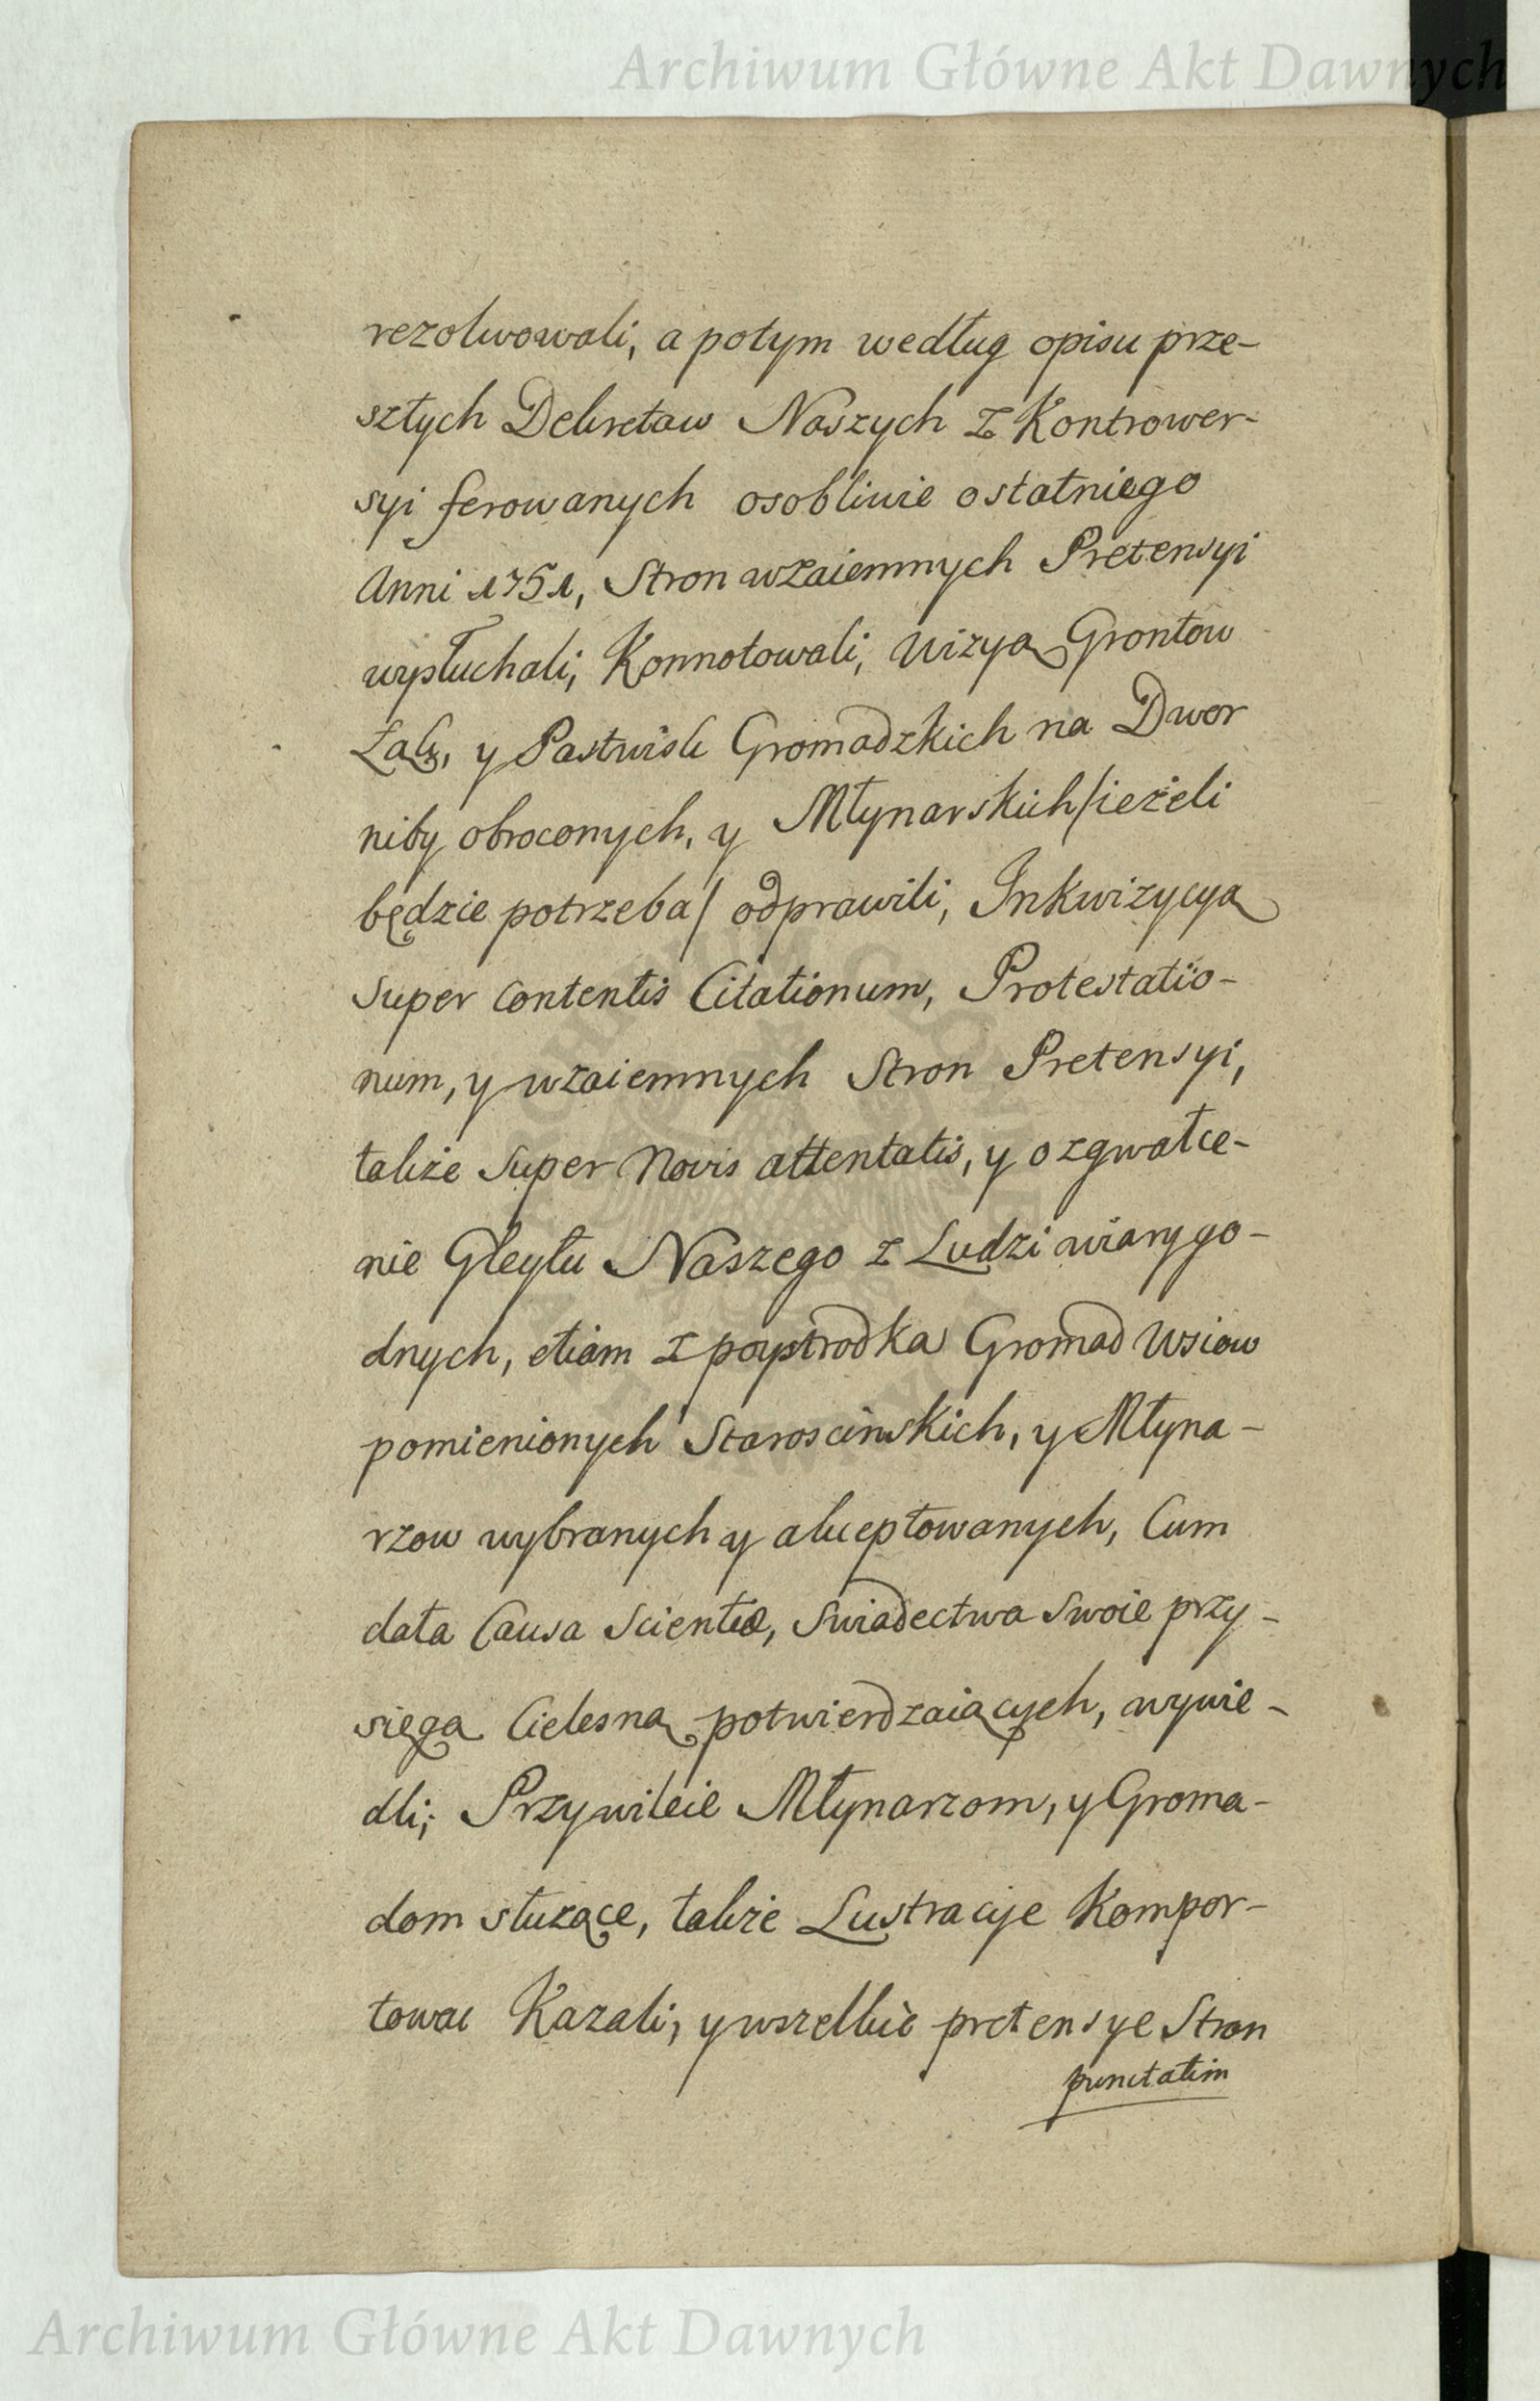 Archiwum Główne Akt Dawnych
rezolwowali, a potym według opisu prze-
szłych Dekretow Naszych z Kontrower-
syi ferowanych osobliwie ostatniego
Anni 1751, Stron wzaiemnych Pretensyi
wysłuchali, Konnotowali, Wizyą Grontow
Łąk, y Pastwisk Gromadzkich na Dwor
niby obroconych, y Młynarskich/ieżeli
będzie potrzeba/ odprawili, Inkwizycyą
super contentis Citationum, Protestatio-
num, y wzaiemnych Stron Pretensyi,
także super novis attentatis, y o zgwałce-
nie Gleytu Naszego z Ludzi wiarygo-
dnych, etiam z pośrodka Gromad Wsiow
pomienionych Staroscinskich, y Młyna-
rzow wybranych y akceptowanych, Cum
data Causa Scientiæ, Swiadectwa swoie przy-
sięgą Cielesną potwierdzaiących, wywie-
dli; Przywileie Młynarzom, y Groma-
dom słuzące, także Lustracye Kompor-
towac Kazali, y wszelkie pretensye Stron
punctatim
Archiwum Główne Akt Dawnych